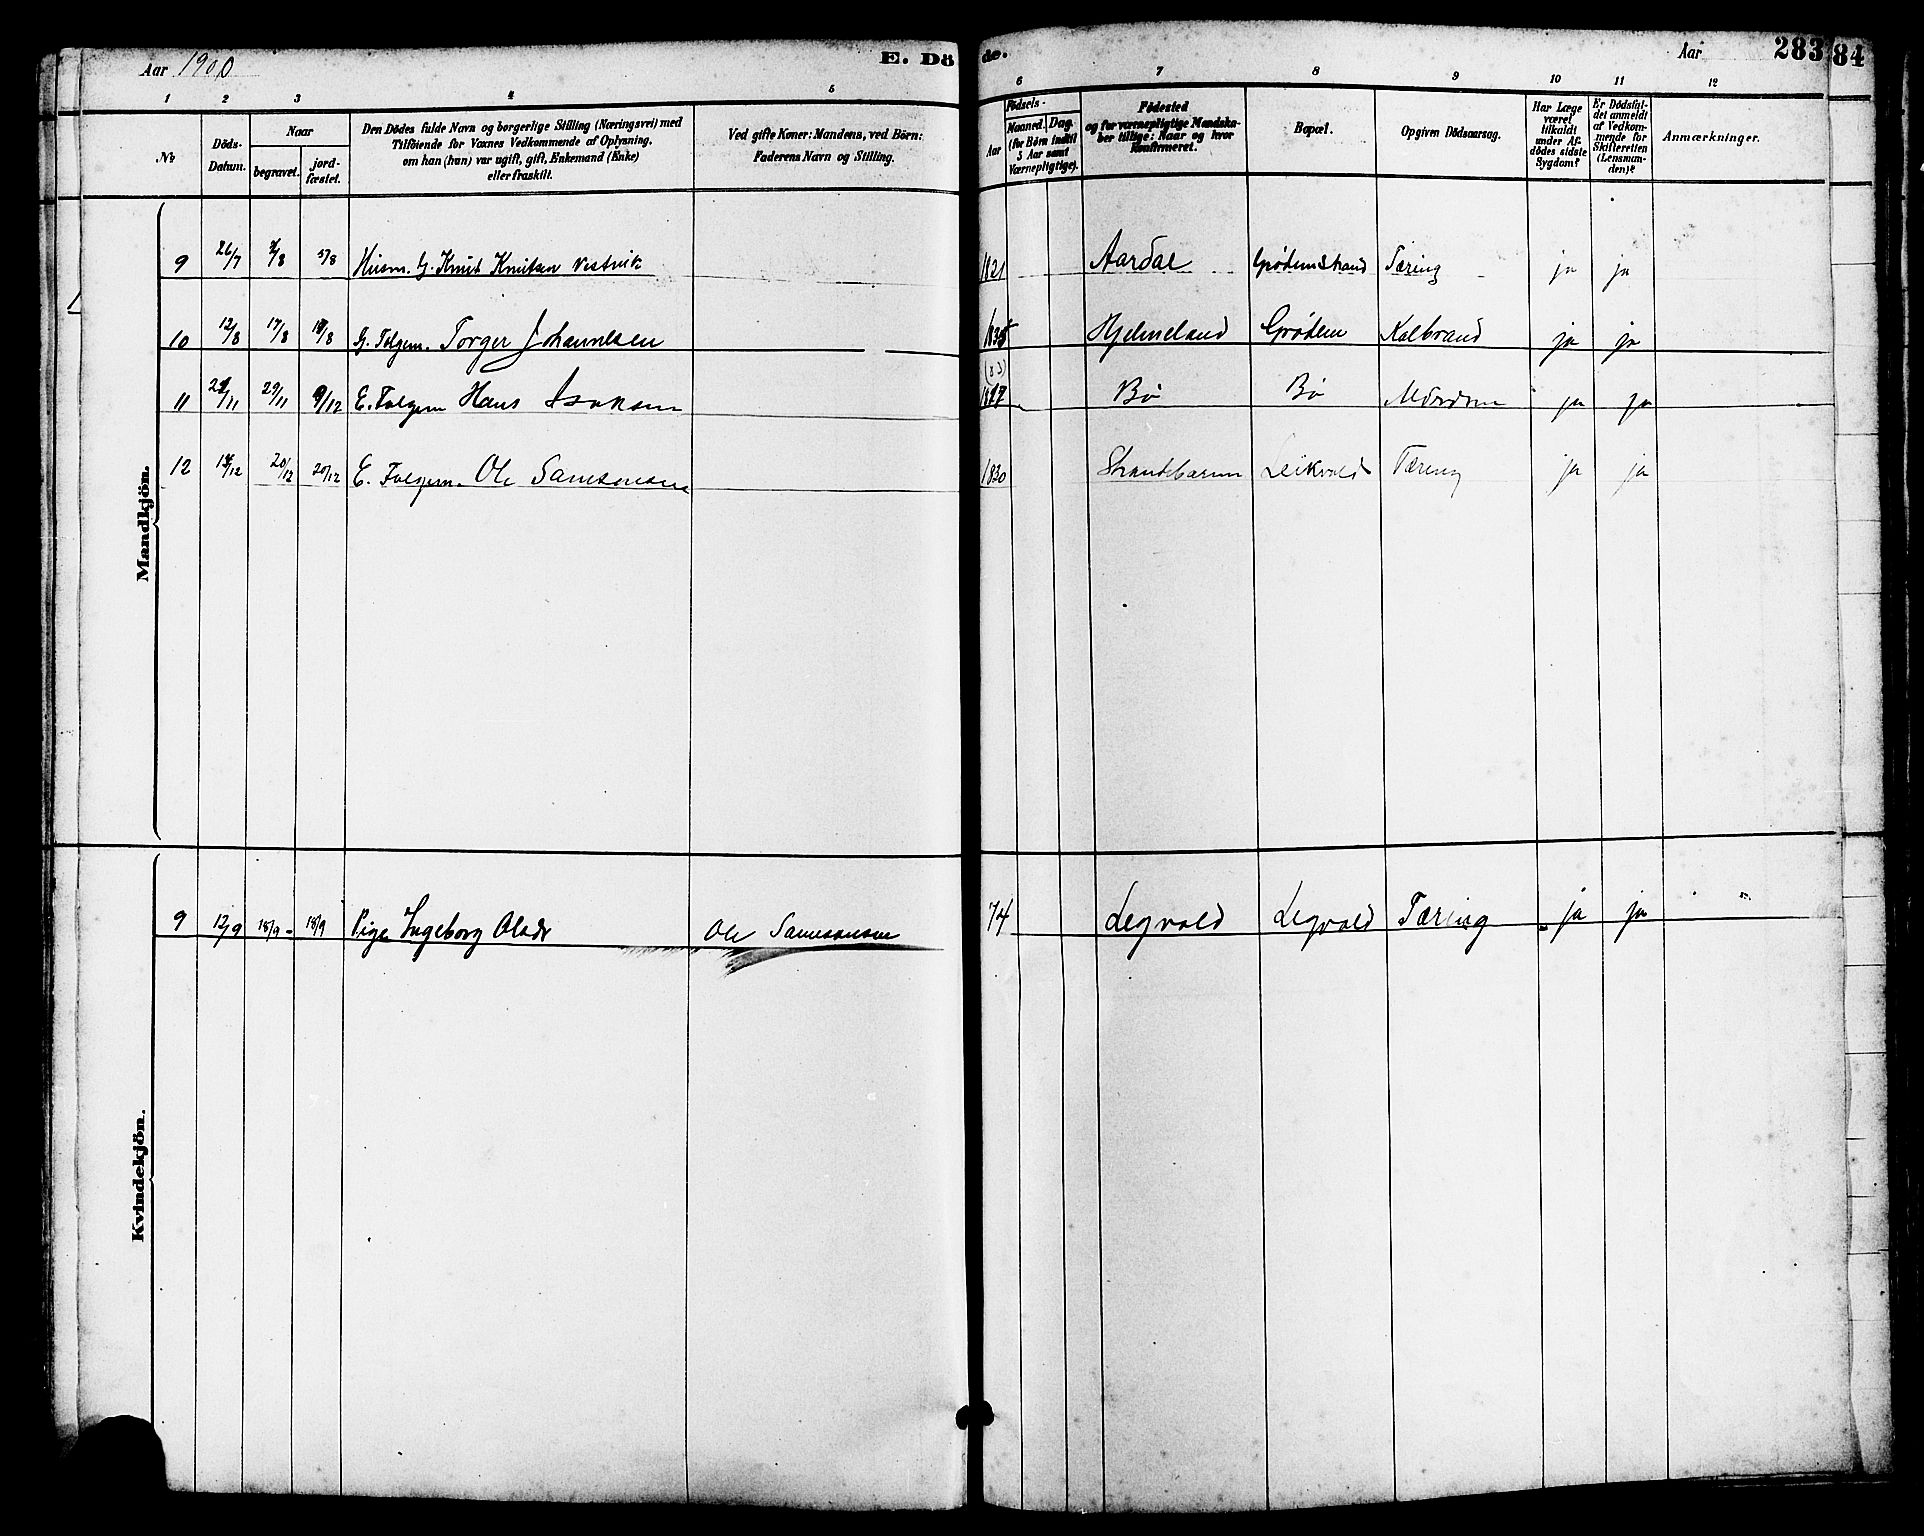 Aar 1900 E. Döde. Aar 283 84
1 2 3 4 5 6 7 8 9 10 11 12
No.
Döds-Datum.
Naar
begravet.
jord-fæstet.
Den Dödes fulde Navn og borgerlige Stilling (Næringsvei) med
Tilföiende for Voxnes Vedkommende af Oplysning,
om han (hun) var ugift, gift, Enkemand (Enke)
eller fraskilt.
Ved gifte Koner: Mandens, ved Börn:
Faderens Navn og Stilling.
Födsels-
Aar
Maaned. Dag.
(for Börn indtil
5 Aar samt
Værnepligtige).
Födested
og for værnepligtige Mandska-
ber tillige: Naar og hvor
konfirmeret.
Bopæl.
Opgiven Dödsaarsag.
Har Læge
været
tilkaldt
under Af-
dödes sidste
Sygdom?
Er Dödsfal-
det anmeldt
af Vedkom-
mende for
Skifteretten
(Lensman-
den)?
Anmærkninger.
Mandkjön.
9 26/7 /8 5/8 Husm. G. Knut Knutsen Vestvik 1821 Aardal Grødemstrand Tæring ja ja
10 12/8 17/8 /8 G. Folgem. Torger Johannesen Hjelmeland Grødem Kolbrand ja ja
11 /11 29/11 9/12 E. Folgem Hans Isaksen Bø Bø ja ja
12 /12 20/12 20/12 E. Folgem. Ole Samsonsen 1830 Strandebarm Leikvold Tæring ja ja
Kvindekjön.
9 12/9 18/9 18/9 Pige Ingeborg Olsdr Ole Samsonsen 74 Legvold Legvold Tæring ja ja